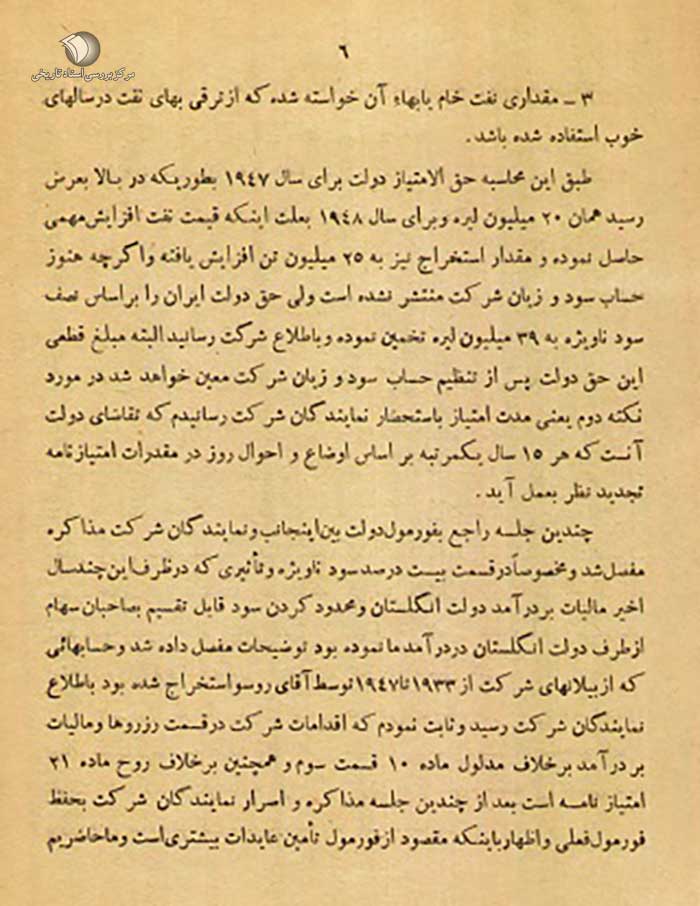 مرکز بررسی اسناد تاریخی
٦
۳ ـ مقداری نفت خام یابهاء آن خواسته شده که ازترقی بهای نفت درسالهای
خوب استفاده شده باشد .
طبق این محاسبه حق الامتیاز دولت برای سال ۱۹٤۷ بطوریکه در بالا بعرض
رسید همان ۲۰ میلیون لیره وبرای سال ۱۹٤۸ بعلت اینکه قیمت نفت افزایش مهمی
حاصل نموده و مقدار استخراج نیز به ۲٥ میلیون تن افزایش یافته واگرچه هنوز
حساب سود و زیان شرکت منتشر نشده است ولی حق دولت ایران را براساس نصف
سود ناویژه به ۳۹ میلیون لیره تخمین نموده وباطلاع شرکت رسانید البته مبلغ قطعی
این حق دولت پس از تنظیم حساب سود و زیان شرکت معین خواهد شد در مورد
نکته دوم یعنی مدت امتیاز باستحضار نمایندگان شرکت رسانیدم که تقاضای دولت
آنست که هر ۱٥ سال یکمرتبه بر اساس اوضاع و احوال روز در مقدرات امتیازنامه
تجدید نظر بعمل آید .
چندین جلسه راجع بفورمول دولت بین اینجانب و نمایندگان شرکت مذاکره
مفصل شد ومخصوصاً درقسمت بیست درصد سود ناویژه وتأثیری که درظرف این چندسال
اخیر مالیات بردرآمد دولت انگلستان ومحدود کردن سود قابل تقسیم بصاحبان سهام
ازطرف دولت انگلستان دردرآمد ما نموده بود توضیحات مفصل داده شد وحسابهائی
که ازبیلانهای شرکت از ۱۹۳۳ تا ۱۹٤۷ توسط آقای روسو استخراج شده بود باطلاع
نمایندگان شرکت رسید وثابت نمودم که اقدامات شرکت درقسمت رزروها ومالیات
بردرآمد برخلاف مدلول ماده ۱۰ قسمت سوم و همچنین برخلاف روح ماده ۲۱
امتیاز نامه است بعد از چندین جلسه مذاکره و اسرار نمایندگان شرکت بحفظ
فورمول فعلی واظهار باینکه مقصود ازفورمول تأمین عایدات بیشتری است وما حاضریم